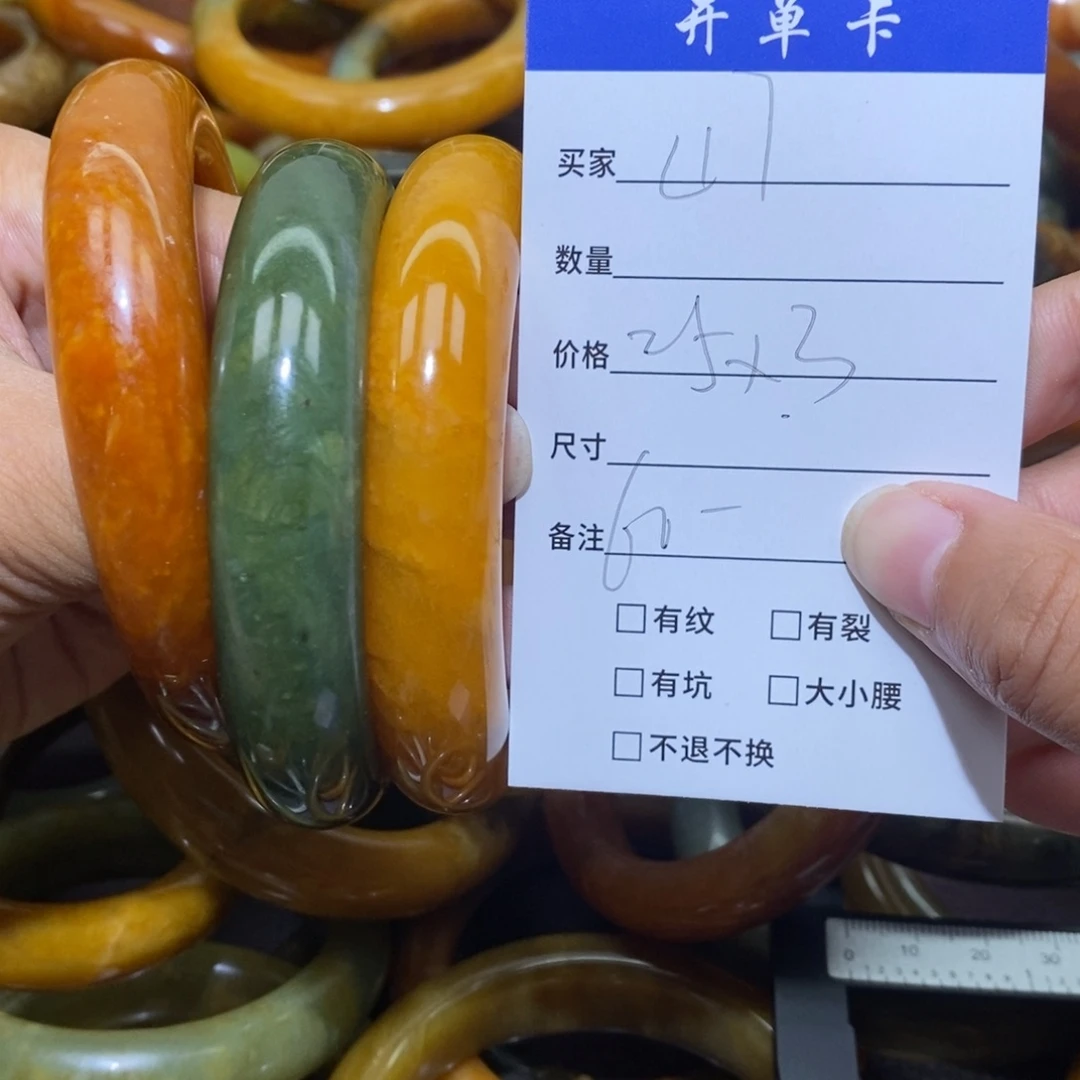 开单卡
买家 山7
数量
价格 25x3
尺寸
备注 60-
□有纹 □有裂
□有坑 □大小腰
□不退不换
0 10 20 30